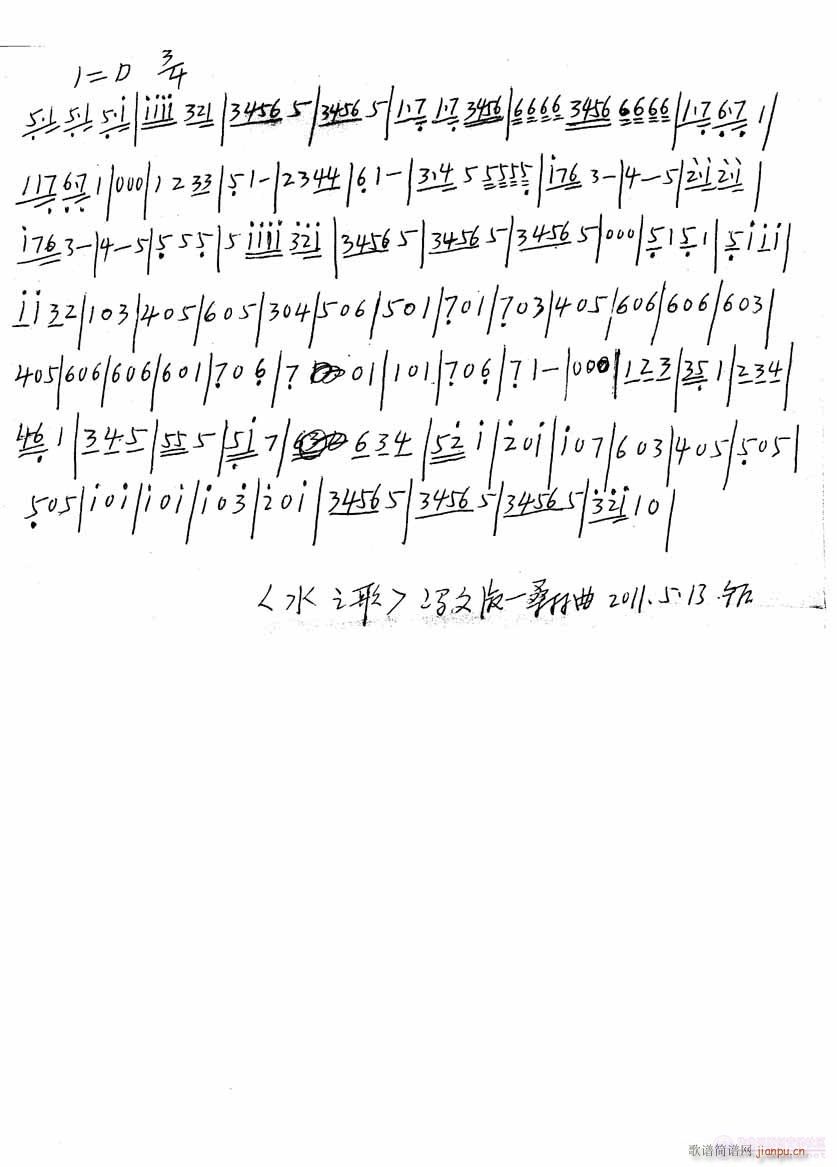 1=D 3/4
5·1 5·1 5·i|iiii 321|3456 5|3456 5|1·7 1·7 3456|6666 3456 6666|1·7 6·7 1|
117 6·7 1|000|1 2 33|5 1-|2344|6 1-|3·4 5 5555|i76 3-|4-5|2·i 2·i|
i76 3-|4-5|5 5 5|5 iiii 32i|3456 5|3456 5|3456 5|000|5151|5iii|
ii32|103|405|605|304|506|501|701|703|405|606|606|603|
405|606|606|601|706|7 01|101|706|71-|000|123|351|234|
461|34·5|555|5i7|634|52i|20i|i07|603|405|505|
505|i0i|i0i|i03|20i|3456 5|3456 5|3456 5|32i10|
<水之形> 2011.5.13
歌谱简谱网 jianpu.cn